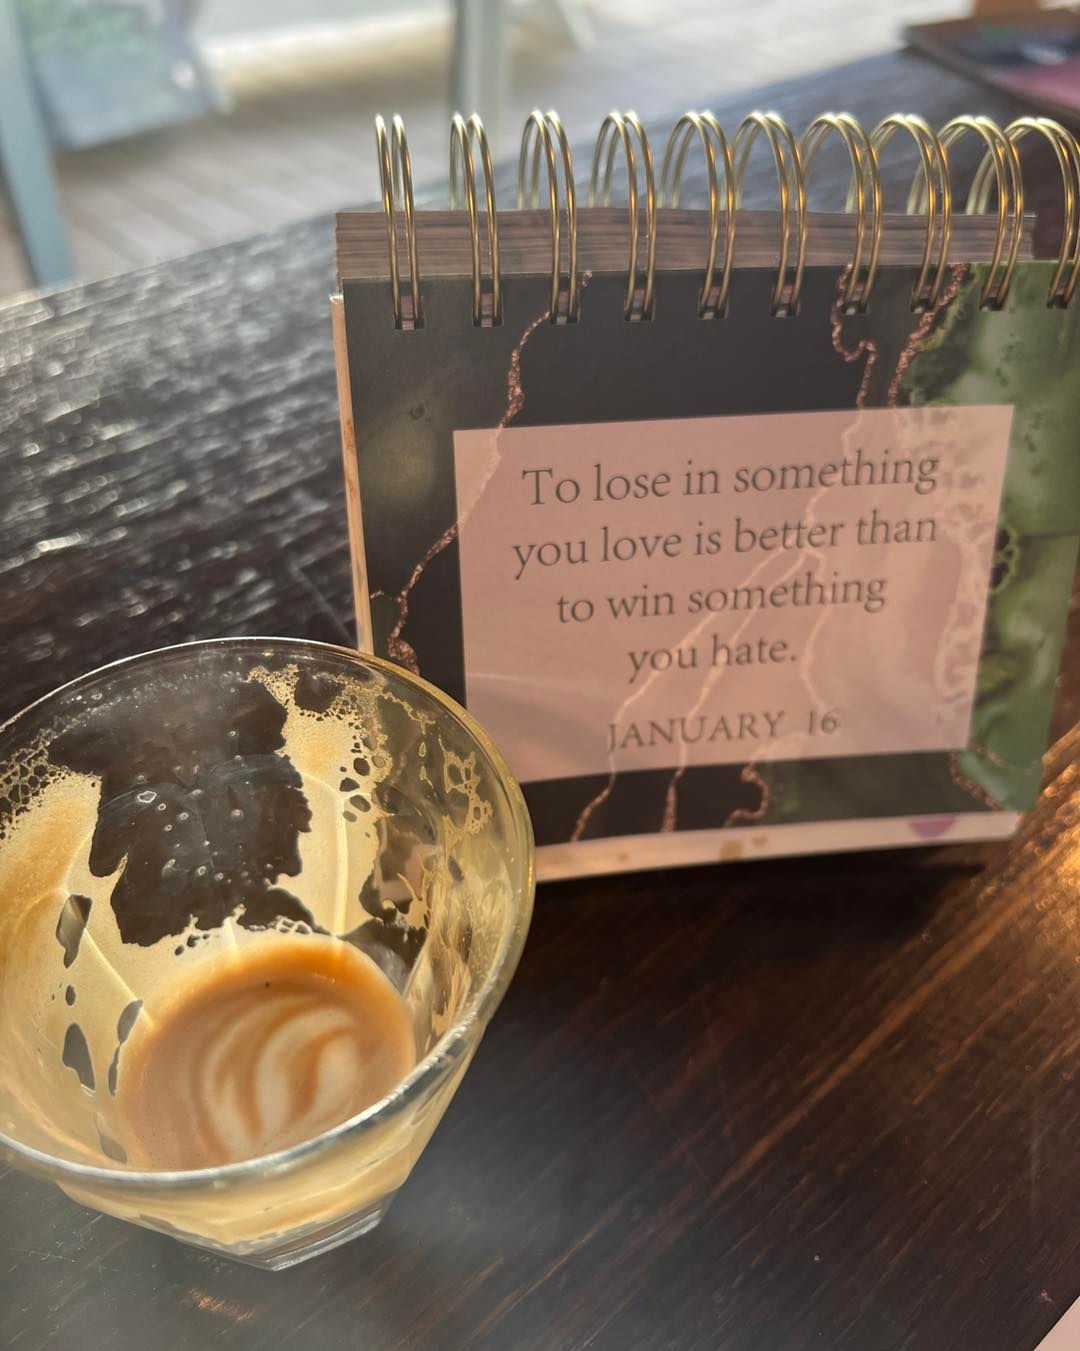 To lose in something
you love is better than
to win something
you hate.
JANUARY 16